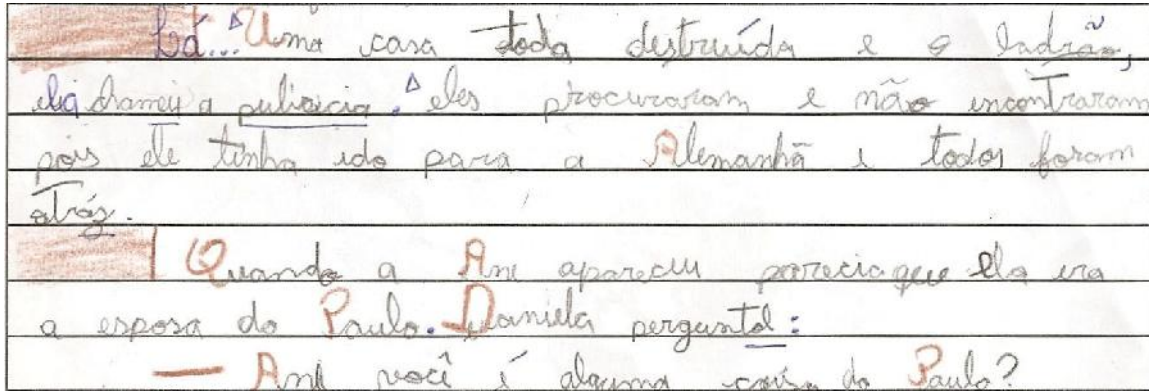 Lá... Uma casa toda destruída e o ladrão,
ela chamou a puliricia. eles procuraram e não encontraram
pois ele tinha ido para a Alemanhã e todos foram
atráz.
Quando a Ane apareceu parecia que ela era
a esposa do Paulo. Daniela perguntol:
— Ane você é alguma coisa do Paulo?